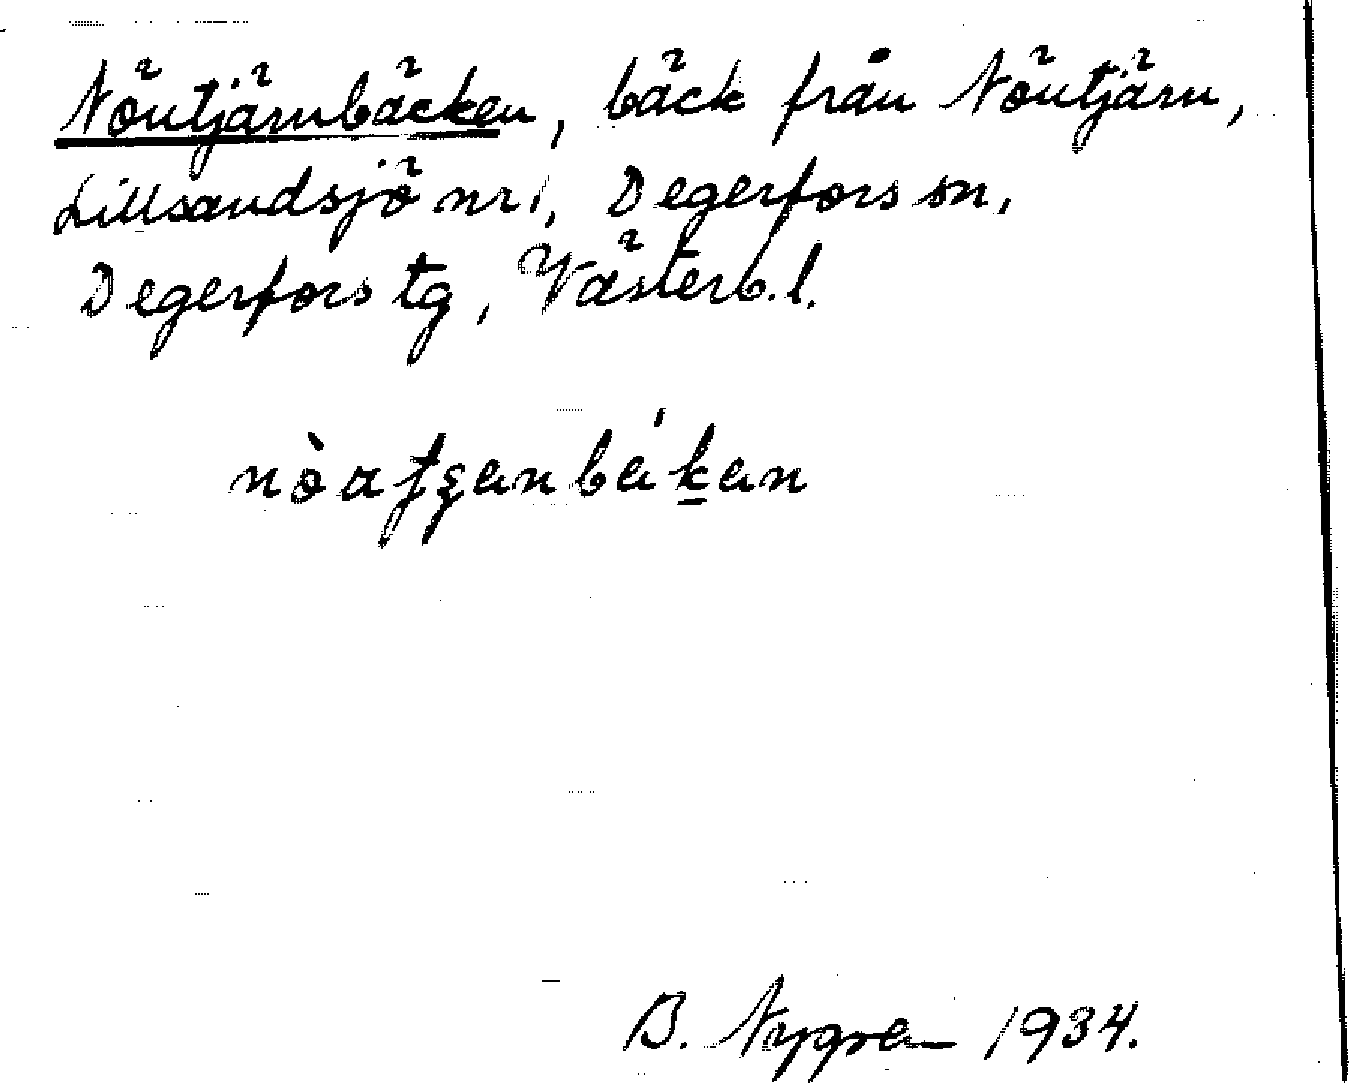 Nöutjärnbäcken, bäck från Nöutjärn,
Lillsandsjö nr 1, Degerfors sn,
Degerfors tg, Västerb. l.
B. Nygren 1934.